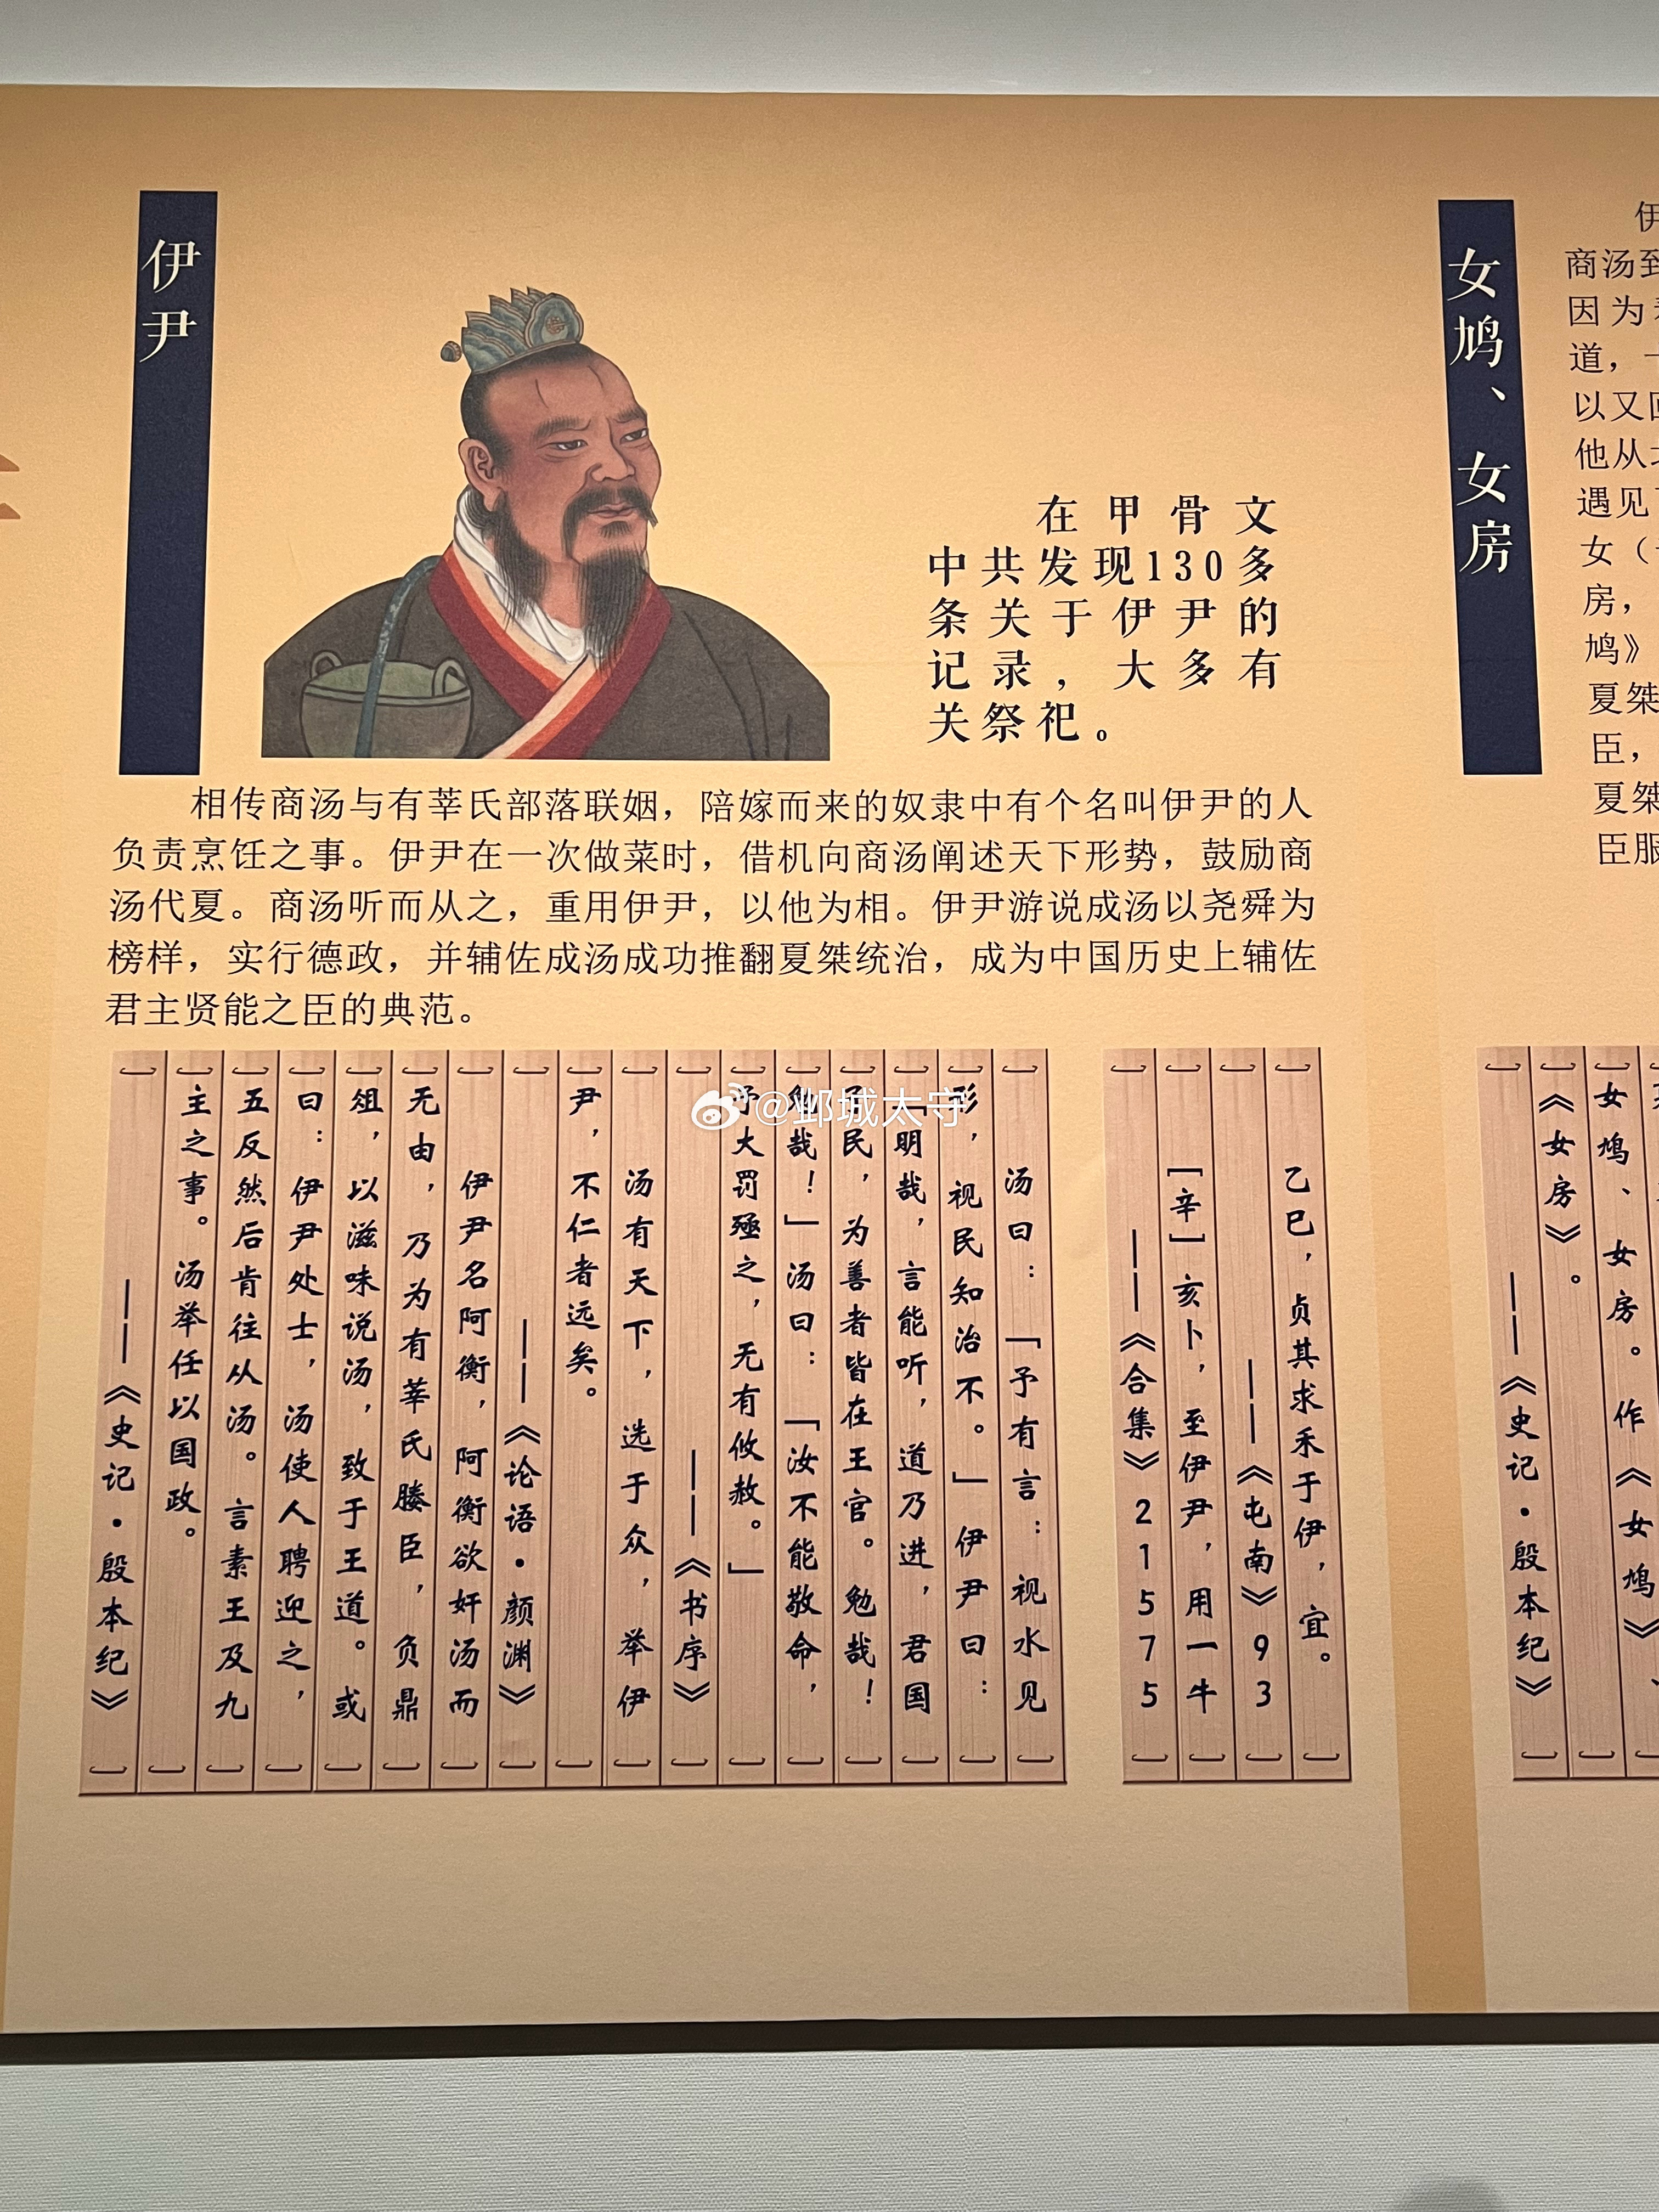 伊尹
在甲骨文
中共发现130多
条关于伊尹的
记录，大多有
关祭祀。
相传商汤与有莘氏部落联姻，陪嫁而来的奴隶中有个名叫伊尹的人
负责烹饪之事。伊尹在一次做菜时，借机向商汤阐述天下形势，鼓励商
汤代夏。商汤听而从之，重用伊尹，以他为相。伊尹游说成汤以尧舜为
榜样，实行德政，并辅佐成汤成功推翻夏桀统治，成为中国历史上辅佐
君主贤能之臣的典范。
乙巳，贞其求禾于伊，宜。
——《屯南》93
［辛］亥卜，至伊尹，用一牛
——《合集》21575
汤曰：「予有言：视水见
形，视民知治不。」伊尹曰：
「明哉，言能听，道乃进，君国
子民，为善者皆在王官。勉哉！
勉哉！」汤曰：「汝不能敬命，
予大罚殛之，无有攸赦。」
——《书序》
汤有天下，选于众，举伊
尹，不仁者远矣。
——《论语·颜渊》
伊尹名阿衡，阿衡欲奸汤而
无由，乃为有莘氏媵臣，负鼎
俎，以滋味说汤，致于王道。或
曰：伊尹处士，汤使人聘迎之，
五反然后肯往从汤。言素王及九
主之事。汤举任以国政。
——《史记·殷本纪》
女鸠、女房
商汤到
因为
道，
以又回
他从
遇见
女（
房，
鸠》
夏桀
臣，
夏桀
臣服
女鸠、女房。作《女鸠》、
《女房》。
——《史记·殷本纪》
@邺城太守